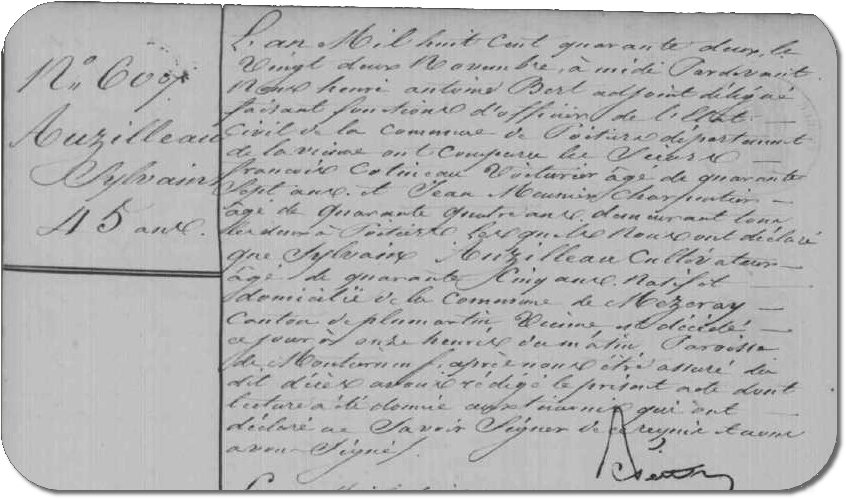 N° 607
Auzilleau
Sylvain
45 ans.
L'an Mil huit cent quarante deux, le
Vingt deux Novembre, à midi Pardevant
Nous henri antoine Bert adjoint délégué
faisant fonctions d'officier de l'état
Civil de la commune de Poitiers département
de la vienne ont comparu les Sieurs
françois Colineau Voiturier âgé de quarante
Sept ans et Jean Meunier Charpentier
âgé de quarante quatre ans, demeurant tous
les deux à Poitiers Lesquels Nous ont déclaré
que Sylvain Auzilleau Cultivateur
âgé de quarante Cinq ans Natif et
domicilié de la Commune de Mézeray
Canton de plumartin Vienne est décédé
ce jour à onze heures du matin Paroisse
de Montierneuf, après nous être assuré du
dit décès avons rédigé le présent acte dont
lecture a été donnée aux témoins qui ont
déclaré ne Savoir Signer de ce requis et avons
avons Signé.